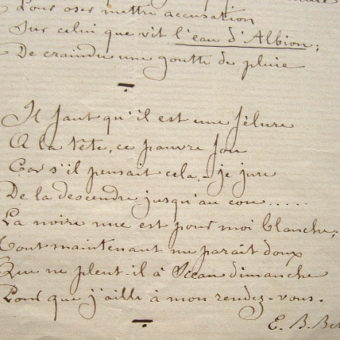 Pour oser mettre accusation
Sur celui que vit l'eau d'Albion ;
De craindre une goutte de pluie
Il faut qu'il est une fêlure
A la tête, ce pauvre fou
Car s'il pensait cela, - je jure
De la descendre jusqu'au cou.....
La noire nue est pour moi blanche,
Tout maintenant me parait doux
Que ne pleut-il à Océan dimanche
Pour que j'aille à mon rendez-vous.
E. B.